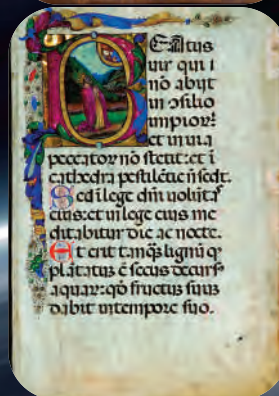 BEatus
uir qui i
nō abijt
in ɔsilio
impioꝝ:
et in uia
peccatoꝝ nō stetit: et ī
cathedra pestilētie ñ sedt.
Sed ī lege dñi uolūta
eius: et in lege eius me
ditabitur die ac nocte.
Et erit tamq̄ lignū qͦ
plātatū ē secus decurs
aquaꝝ: qđ fructus suus
dabit in tempore suo.